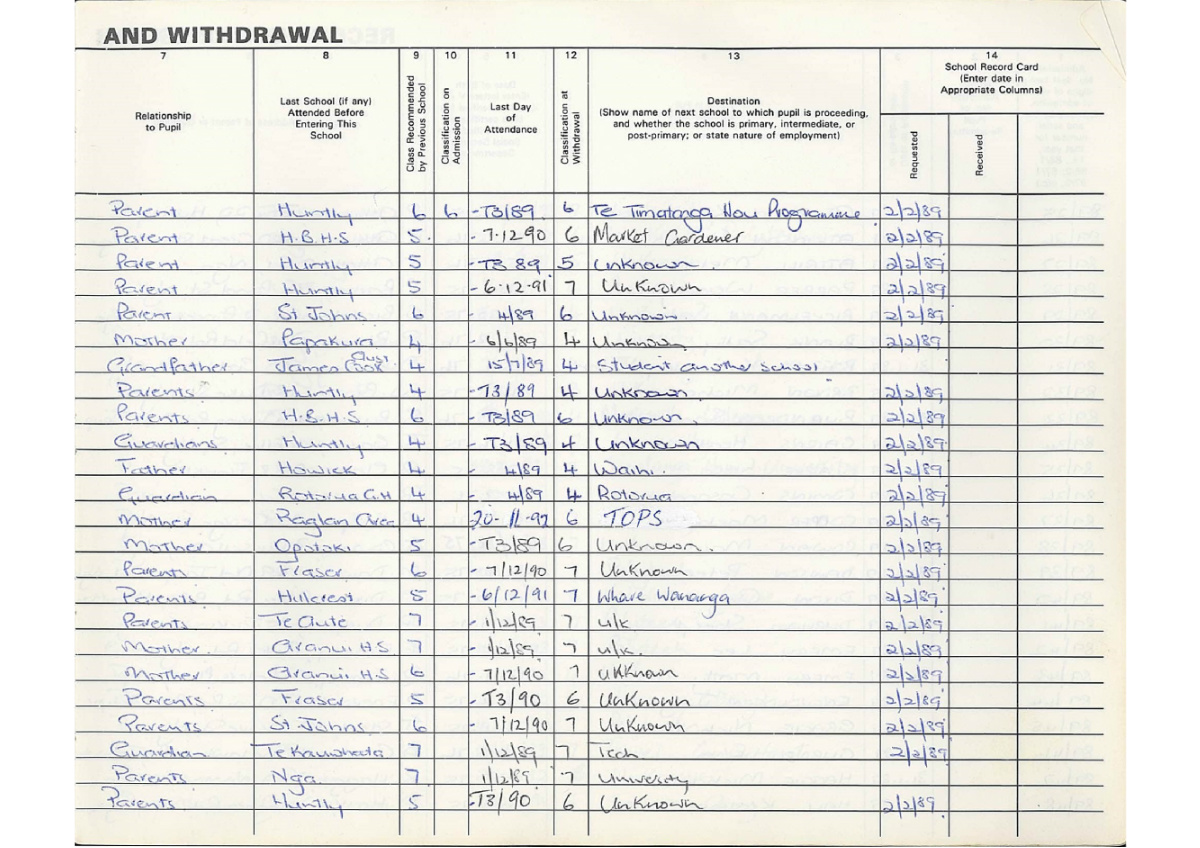 AND WITHDRAWAL
7 8 9 10 11 12 13 14
Relationship to Pupil
Last School (if any) Attended Before Entering This School
Class Recommended by Previous School
Classification on Admission
Last Day of Attendance
Classification at Withdrawal
Destination
(Show name of next school to which pupil is proceeding, and whether the school is primary, intermediate, or post-primary; or state nature of employment)
School Record Card
(Enter date in Appropriate Columns)
Requested
Received
Parent Huntly 6 6 -T3/89 6 Te Timatanga Hou Programme 2/2/89
Parent H.B.H.S 5. -7.12.90 6 Market Gardener 2/2/89
Parent Huntly 5 -T3 89 5 Unknown. 2/2/89
Parent Huntly 5 -6.12.91 7 Unknown 2/2/89
Parent St Johns 6 - 4/89 6 Unknown 2/2/89
Mother Papakura 4 - 6/6/89 4 Unknown 2/2/89
Grandfather James Cook Aust. 4 15/7/89 4 Student another school
Parents Huntly 4 -T3/89 4 Unknown. 2/2/89
Parents H.B.H.S. 6 - T3/89 6 Unknown. 2/2/89
Guardians Huntly 4 - T3/89 4 Unknown 2/2/89
Father Howick 4 - 4/89 4 Waihi. 2/2/89
Guardian Rotorua G.H 4 - 4/89 4 Rotorua 2/2/89
Mother Raglan Area 4 20-11-92 6 TOPS 2/2/89
Mother Opotoki 5 -T3/89 6 Unknown. 2/2/89
Parents Fraser 6 - 7/12/90 7 Unknown 2/2/89
Parents Hillcrest 5 -6/12/91 7 Whare Wananga 2/2/89
Parents Te Aute 7 -1/12/89 7 u/k 2/2/89
Mother. Aranui H.S. 7 -1/12/89 7 u/k. 2/2/89
Mother Aranui H.S 6 - 7/12/90 7 unknown 2/2/89
Parents Fraser 5 -T3/90 6 Unknown 2/2/89
Parents St Johns 6 - 7/12/90 7 Unknown 2/2/89
Guardian Te Kauwhata 7 1/12/89 7 Tech. 2/2/89
Parents Nga. 7 1/12/89 7 University
Parents Huntly 5 -T3/90 6 Unknown 2/2/89